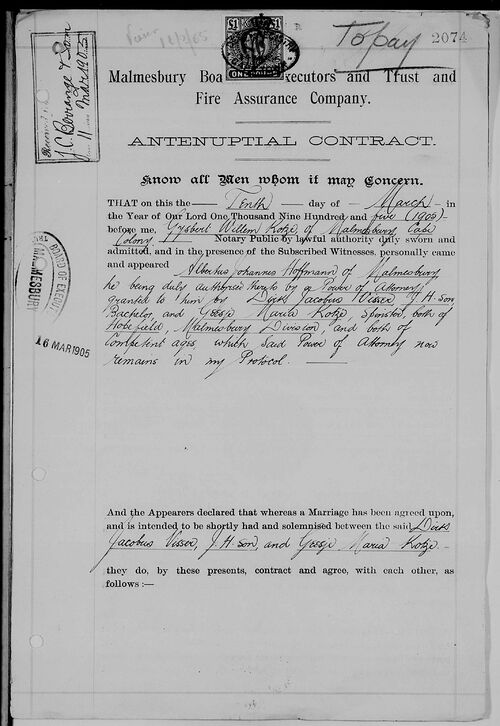 To pay 2074
£1 £1
J.C. Berrange & Son
11 Mar 1905
Malmesbury Boa xecutors and Trust and
Fire Assurance Company.
ANTENUPTIAL CONTRACT.
Know all Men whom it may Concern.
THAT on this the Tenth day of March in
the Year of Our Lord One Thousand Nine Hundred and five (1905)
before me, Gysbert Willem Kotze, of Malmesbury Cape
Colony Notary Public by lawful authority duly sworn and
admitted, and in the presence of the Subscribed Witnesses, personally came
and appeared Albertus Johannes Hoffmann of Malmesbury
he being duly authorised thereto by a Power of Attorney
granted to him by Dirk Jacobus Visser, J. H. son
Bachelor, and Gessje Maria Kotze, Spinster, both of
Hopefield, Malmesbury Division, and both of
competent ages, which said Power of Attorney now
remains in my Protocol.
BOARD OF EXECUT
MALMESBURY
16 MAR 1905
And the Appearers declared that whereas a Marriage has been agreed upon,
and is intended to be shortly had and solemnised between the said Dirk
Jacobus Visser, J. H. son, and Gessje Maria Kotze
they do, by these presents, contract and agree, with each other, as
follows :—